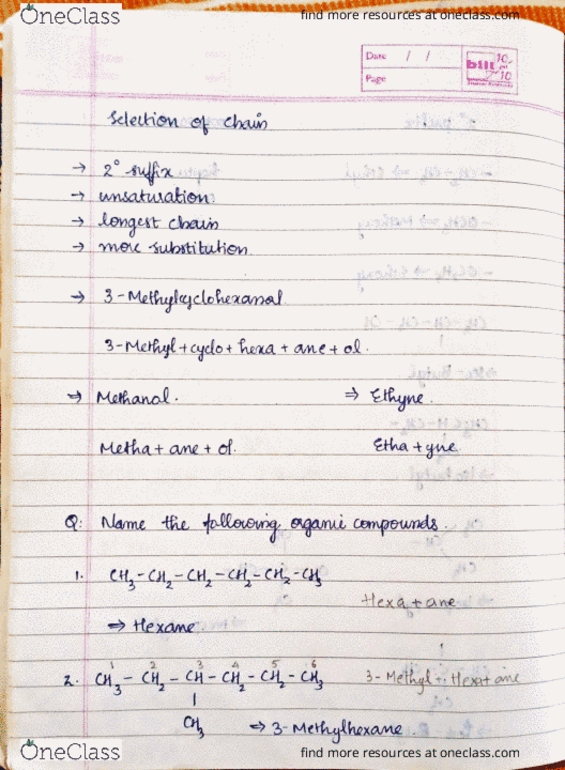 OneClass
find more resources at oneclass.com
Date / /
Page
bilt 10 on 10
Selection of chain
→ 2° suffix
→ unsaturation
→ longest chain
→ more substitution
→ 3-Methylcyclohexanol
3-Methyl+cyclo+hexa+ane+ol.
→ Methanol.
⇒ Ethyne.
Metha+ane+ol.
Etha+yne
Q: Name the following organic compounds.
1. CH₃-CH₂-CH₂-CH₂-CH₂-CH₃
Hexa+ane
⇒ Hexane
1 2 3 4 5 6
2. CH₃-CH₂-CH-CH₂-CH₂-CH₃
3-Methyl+Hexa+ane
CH₃
⇒ 3-Methylhexane
OneClass
find more resources at oneclass.com